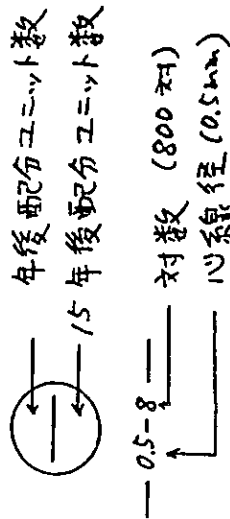 年後配分ユニット数
15年後配分ユニット数
— 0.5-8 —
対数 (800対)
心線径 (0.5mm)